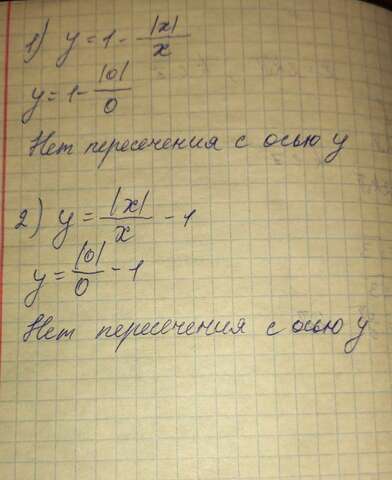 1) y = 1 - |x|/x
y = 1 - |0|/0
Нет пересечения с осью y
2) y = |x|/x - 1
y = |0|/0 - 1
Нет пересечения с осью y